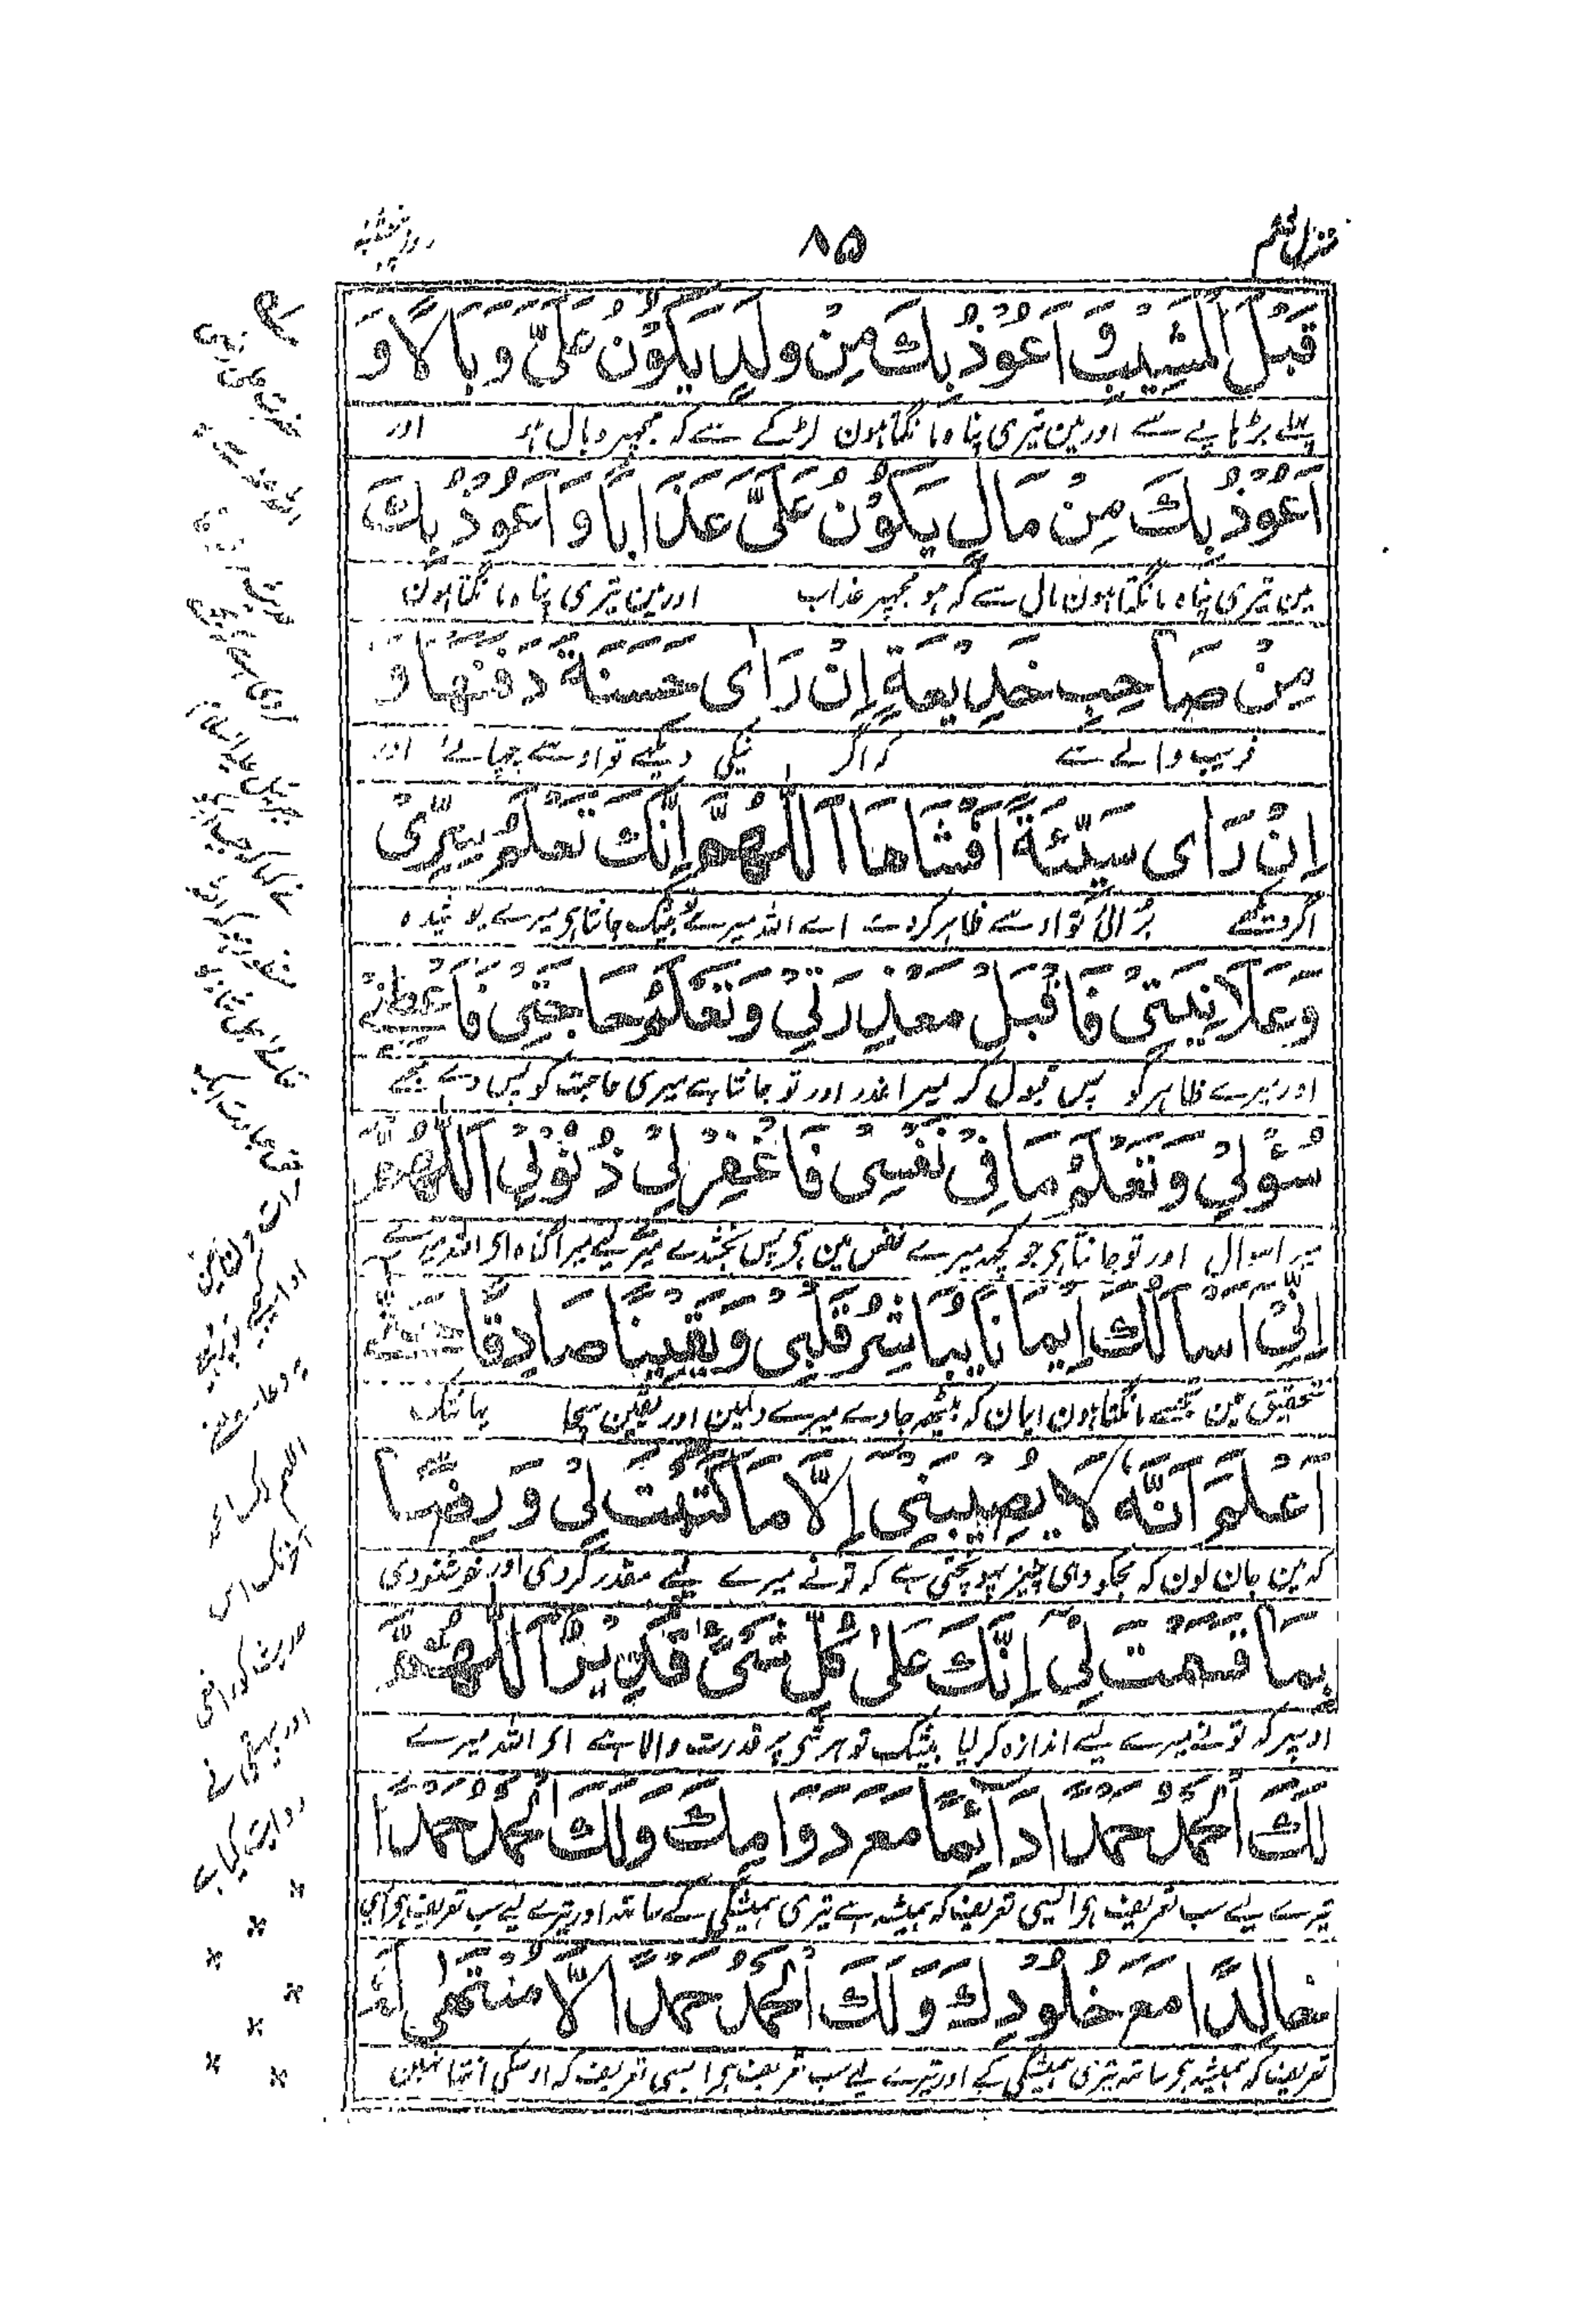 منزل پنجم
۸۵
روز پنجشنبہ
قَبْلَ الْمَشِيْبِ وَ اَعُوْذُ بِكَ مِنْ وَلَدٍ يَكُوْنُ عَلَيَّ وَبَالًا وَ
پہلے بڑہاپے سے اور مین تیری پناہ مانگتا ہون لڑکے سے کہ مجھپر وبال ہو اور
اَعُوْذُ بِكَ مِنْ مَالٍ يَكُوْنُ عَلَيَّ عَذَابًا وَ اَعُوْذُ بِكَ
مین تیری پناہ مانگتا ہون مال سے کہ ہو مجھپر عذاب اور مین تیری پناہ مانگتا ہون
مِنْ صَاحِبِ خَدِيْعَةٍ اِنْ رَاٰى حَسَنَةً دَفَنَهَا وَ
فریب والے سے کہ اگر نیکی دیکھے تو اوسے چھپائے اور
اِنْ رَاٰى سَيِّئَةً اَفْشَاهَا اَللّٰهُمَّ اِنَّكَ تَعْلَمُ سِرِّيْ
اگر دیکھے بُرائی تو اوسے ظاہر کردے اے اللہ میرے بیشک جانتا ہے میرے پوشیدہ
وَ عَلَانِيَتِيْ فَاقْبَلْ مَعْذِرَتِيْ وَ تَعْلَمُ حَاجَتِيْ فَاَعْطِنِيْ
اور میرے ظاہر کو پس قبول کر میرا عذر اور تو جانتا ہے میری حاجت کو پس دے مجھے
سُؤْلِيْ وَ تَعْلَمُ مَا فِيْ نَفْسِيْ فَاغْفِرْ لِيْ ذُنُوْبِيْ اَللّٰهُمَّ
میرا سوال اور تو جانتا ہے جو کچھ میرے نفس مین ہے پس بخشدے میرے لیے میرا گناہ اے اللہ میرے
اِنِّيْ اَسْاَلُكَ اِيْمَانًا يُبَاشِرُ قَلْبِيْ وَ يَقِيْنًا صَادِقًا حَتّٰى
تحقیق مین تجھسے مانگتا ہون ایمان کہ بیٹھ جاوے میرے دلمین اور یقین سچا یہانتک
اَعْلَمَ اَنَّهُ لَا يُصِيْبُنِيْ اِلَّا مَا كَتَبْتَ لِيْ وَ رِضًا
کہ مین جان لون کہ مجکو وہی چیز پہونچتی ہے کہ تونے میرے لیے مقدر کردی اور خوشنودی
بِمَا قَسَمْتَ لِيْ اِنَّكَ عَلٰى كُلِّ شَيْءٍ قَدِيْرٌ اَللّٰهُمَّ
اوسپر کہ تونے میرے لیے اندازہ کرلیا بیشک تو ہر شی پر قدرت والا ہے اے اللہ میرے
لَكَ الْحَمْدُ حَمْدًا دَآئِمًا مَعَ دَوَامِكَ وَ لَكَ الْحَمْدُ حَمْدًا
تیرے لیے سب تعریف ہے ایسی تعریف کہ ہمیشہ ہے تیری ہمیشگی کے ساتھ اور تیرے لیے سب تعریف ہے ایسی
خَالِدًا مَعَ خُلُوْدِكَ وَ لَكَ الْحَمْدُ حَمْدًا لَا مُنْتَهٰى لَهٗ
تعریف کہ ہمیشہ ہے ساتھ تیری ہمیشگی کے اور تیرے لیے سب تعریف ہے ایسی تعریف کہ اوسکی انتہا نہین
رات و دن مین
یہ دعا پڑھے
اللہم لک الحمد
آخر تک اس
حدیث کو رافعی
اور بیہقی نے
روایت کیا ہے